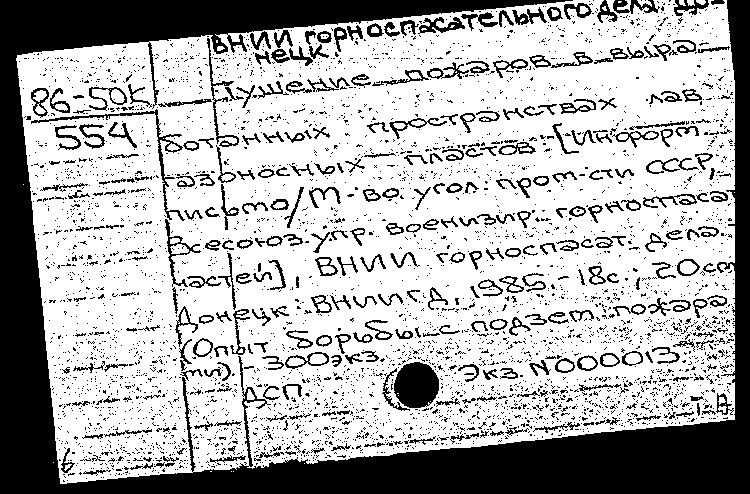 ВНИИ горноспасательного дела. До-
нецк.
86-50к
Тушение пожаров в выра-
554
ботанных пространствах лав
газоносных пластов: [Информ.
письмо/М-во. угол. пром-сти СССР,
Всесоюз. упр. военизир. горноспасат.
частей], ВНИИ горноспасат. дела.
Донецк: ВНИИГД, 1985.-18с.; 20см
(Опыт борьбы с подзем. пожара-
ми). 300экз.
Экз. N000013.
ДСП.
6